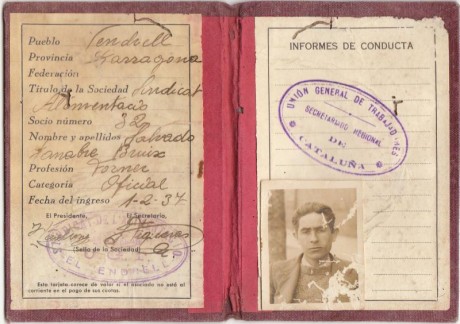 Pueblo Vendrell
Provincia Tarragona
Federación
Título de la Sociedad Sindicat
Alimentació
Socio número 32
Nombre y apellidos Salvado
Bruix
Profesión Forner
Categoría Oficial
Fecha del ingreso 1-2-37
El Presidente, El Secretario,
(Sello de la Sociedad)
Esta tarjeta carece de valor si el asociado no está al
corriente en el pago de sus cuotas.
INFORMES DE CONDUCTA
UNIÓN GENERAL DE TRABAJADORES
SECRETARIADO REGIONAL
DE
CATALUÑA